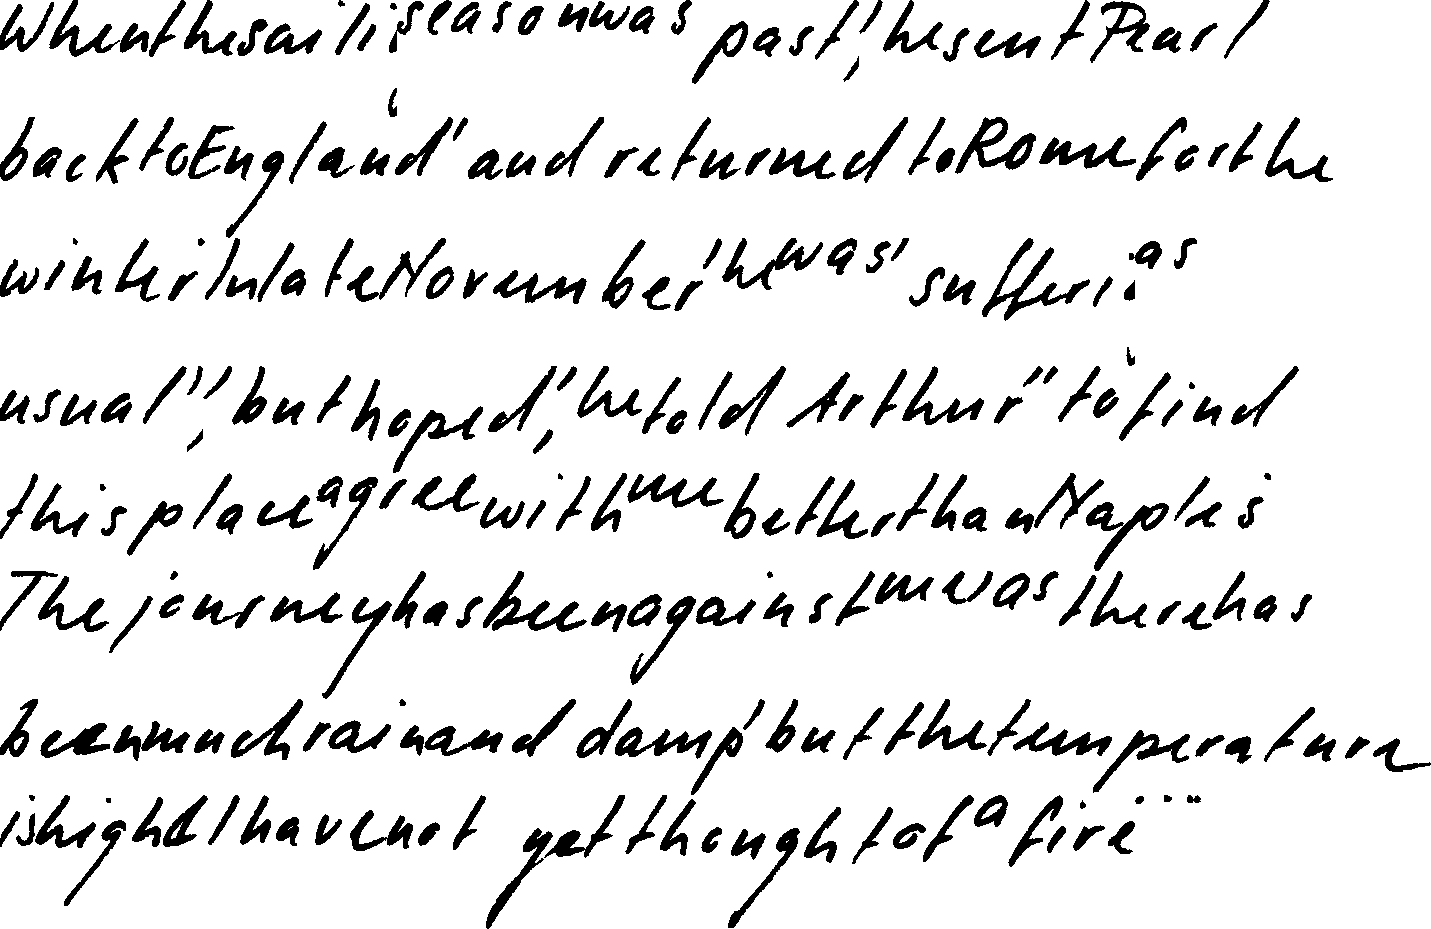 When the saili season was past, he sent Pearl
back to England and returned to Rome for the
winter In late November he was' sufferi as
usual', but hoped, he told Arthur" to find
this place agree with me better than Naples
The journey has been against me was there has
been much rain and damp but the temperature
is high & I have not yet thought of a fire...